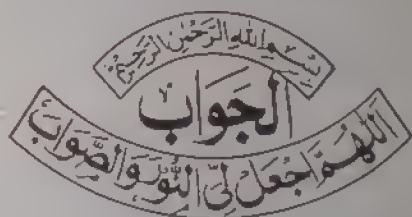 بِسْمِ اللهِ الرَّحْمٰنِ الرَّحِيْمِ
الجَوَاب
اَللّٰهُمَّ اجْعَلْ لِیَ النُّوْرَ وَالصَّوَابَ